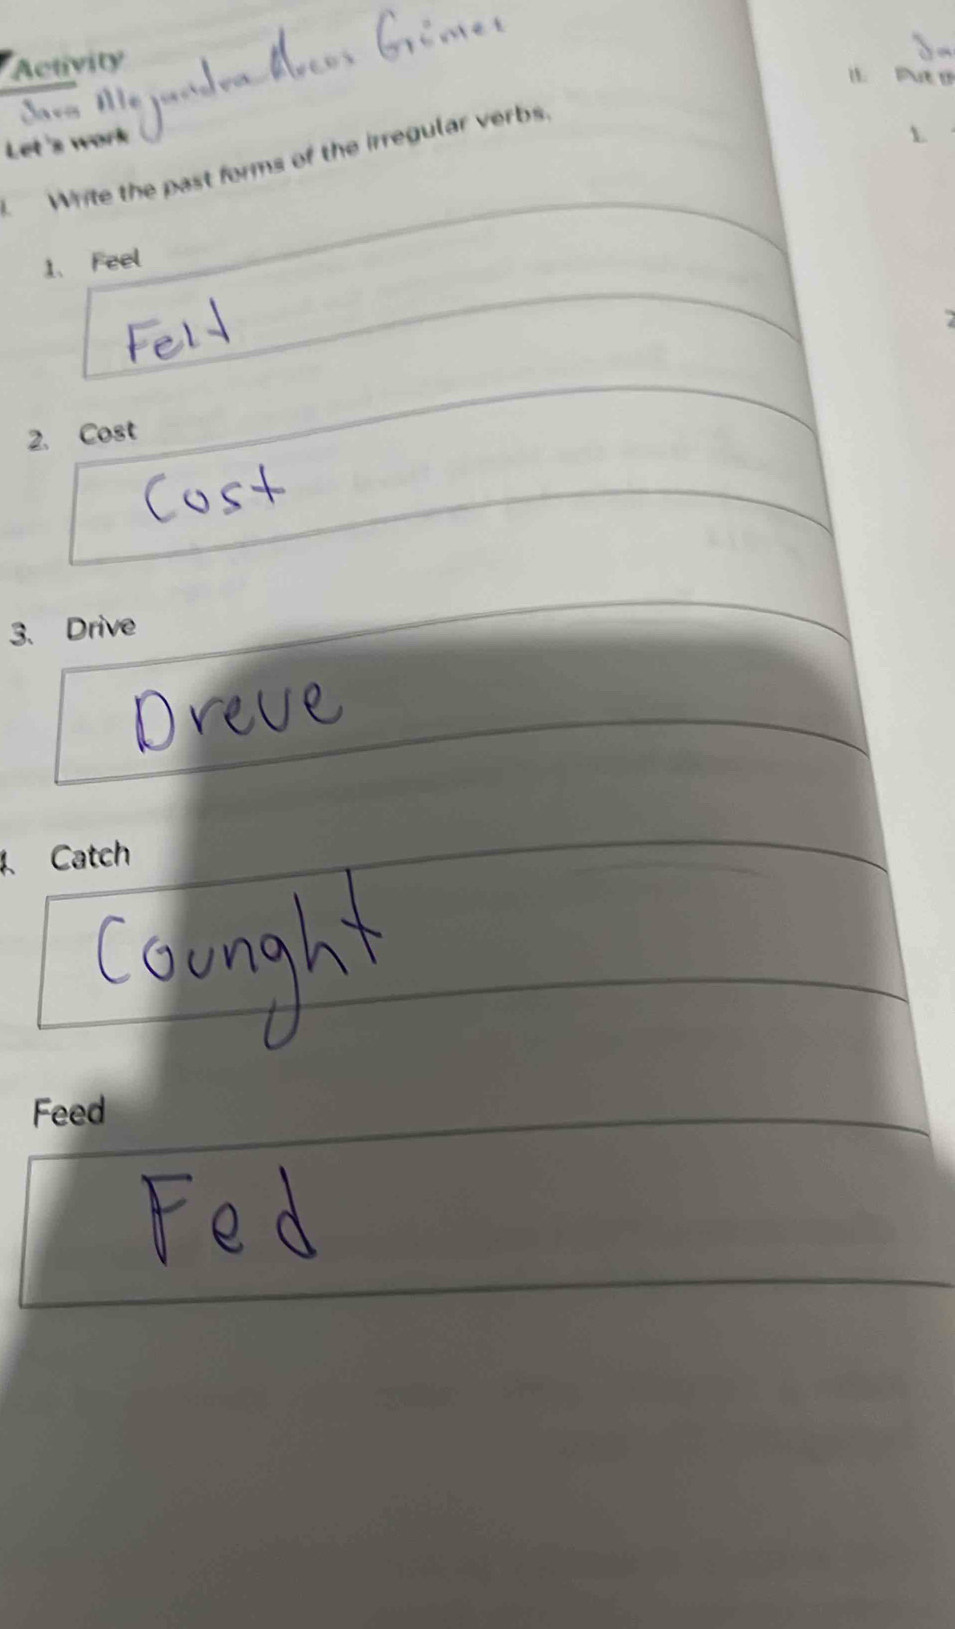 Activity
Sara Alejandra Arcos Grimes
Let's work
I. Write the past forms of the irregular verbs.
1. Feel
Felt
2. Cost
Cost
3. Drive
Dreve
4. Catch
Counght
Feed
Fed
II. Put
1.